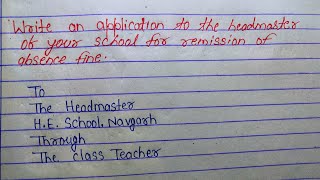 Write an application to the headmaster
of your school for remission of
absence fine.
To
The Headmaster
H.E. School, Navgarh
Through
The class Teacher